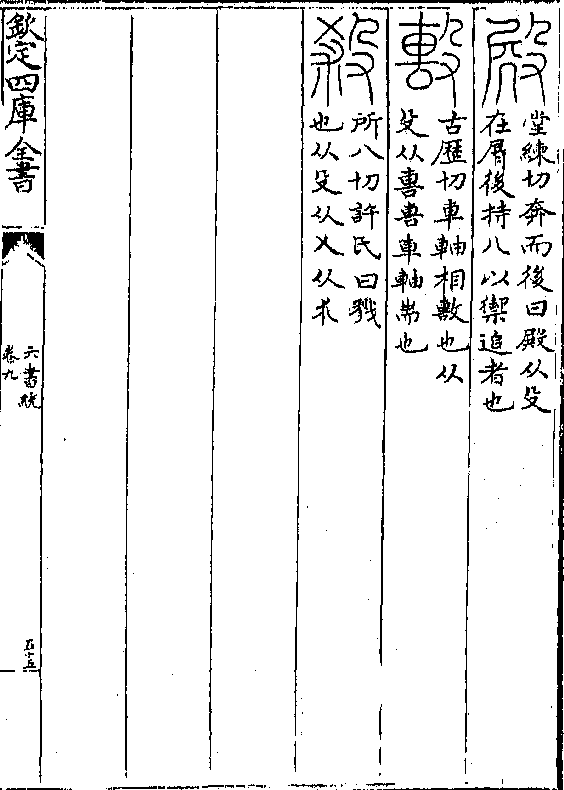 殿
堂練切奔而後曰殿从殳
在後持八以禦追者也
毄
古歷切車軸相毄也从
殳从軎軎車軸耑也
殺
所八切許氏曰戮
也从殳从乂从朮
欽定四庫全書
六書統
卷九
五十五